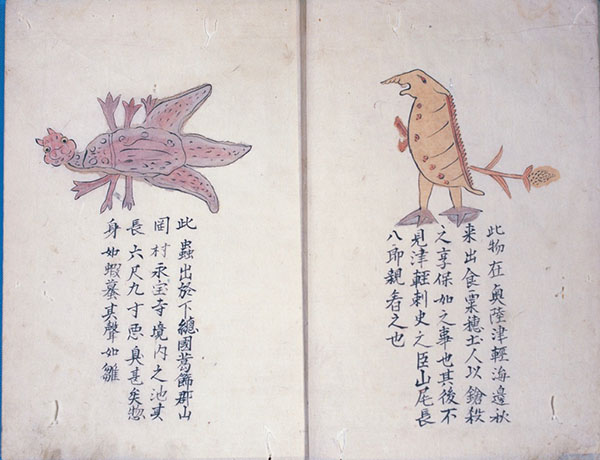 此物在奥陸津輕海邊秋
来出食粟穗土人以鎗殺
之享保如之事也其後不
見津輕刺史之臣山尾長
八郎親看之也
此蟲出於下總國葛飾郡山
岡村永宝寺境内之池其
長六尺九寸悪臭甚矣惣
身如蝦蟇其聲如雛